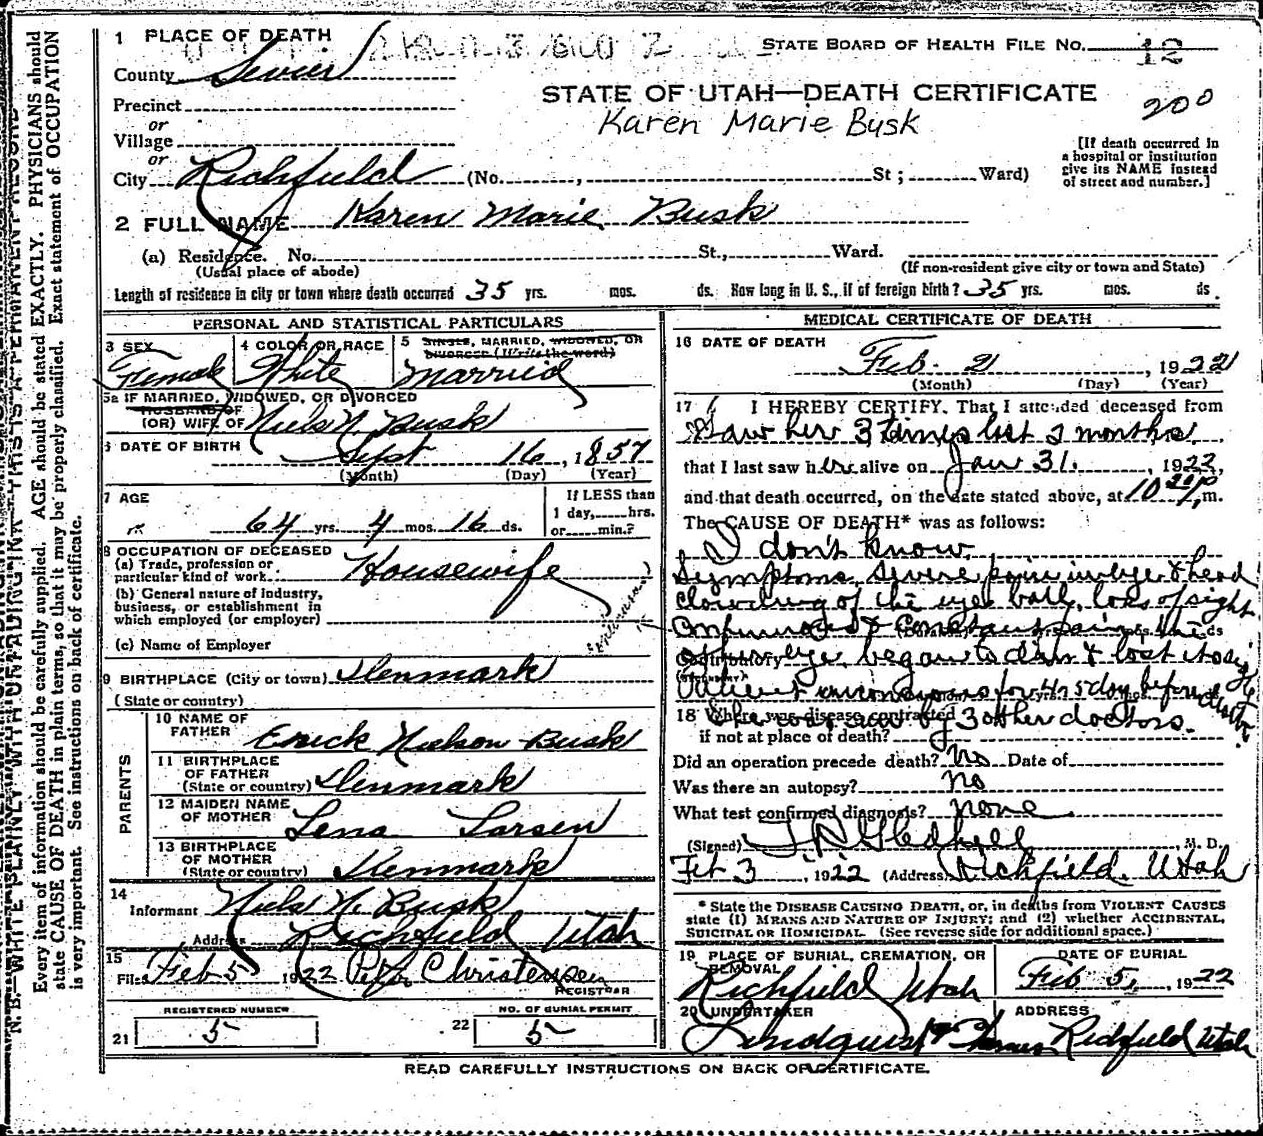 1 PLACE OF DEATH
STATE BOARD OF HEALTH FILE NO. 12
County Sevier
STATE OF UTAH—DEATH CERTIFICATE
200
Precinct
Karen Marie Busk
or
Village
or
City Richfield (No. , St ; Ward)
[If death occurred in
a hospital or institution
give its NAME instead
of street and number.]
2 FULL NAME Karen Marie Busk
(a) Residence. No. St., Ward.
(Usual place of abode)
(If non-resident give city or town and State)
Length of residence in city or town where death occurred 35 yrs. mos. ds. How long in U. S., if of foreign birth? 35 yrs. mos. ds.
PERSONAL AND STATISTICAL PARTICULARS
3 SEX
Female
4 COLOR OR RACE
White
5 SINGLE, MARRIED, WIDOWED, OR
DIVORCED (Write the word)
Married
5a IF MARRIED, WIDOWED, OR DIVORCED
HUSBAND OF
(OR) WIFE OF Niels N. Busk
6 DATE OF BIRTH
Sept 16, 1857
(Month) (Day) (Year)
7 AGE
64 yrs. 4 mos. 16 ds.
If LESS than
1 day, hrs.
or min.?
8 OCCUPATION OF DECEASED
(a) Trade, profession or
particular kind of work Housewife
(b) General nature of industry,
business, or establishment in
which employed (or employer)
(c) Name of Employer
9 BIRTHPLACE (City or town) Denmark
(State or country)
PARENTS
10 NAME OF
FATHER Erick Nielson Busk
11 BIRTHPLACE
OF FATHER
(State or country) Denmark
12 MAIDEN NAME
OF MOTHER Lena Larsen
13 BIRTHPLACE
OF MOTHER
(State or country) Denmark
14
Informant Niels N. Busk
Address Richfield Utah
15
Filed Feb 5 1922 Christensen
REGISTRAR
REGISTERED NUMBER
21 5
NO. OF BURIAL PERMIT
22 5
MEDICAL CERTIFICATE OF DEATH
16 DATE OF DEATH
Feb. 2, 1922
(Month) (Day) (Year)
17 I HEREBY CERTIFY, That I attended deceased from
Saw her 3 times last 2 months
that I last saw her alive on Jan 31, 1922,
and that death occurred, on the date stated above, at 10 P m.
The CAUSE OF DEATH* was as follows:
I don't know
Symptoms severe pain in eye & head
clouding of the eye ball, loss of sight
& constant pain, the
other eye began to dim & lost its sight
Patient unconscious for 4 or 5 days before death
Contributory
18 Where was disease contracted
She was seen by 3 other doctors.
if not at place of death?
Did an operation precede death? No Date of
Was there an autopsy? no
What test confirmed diagnosis? none
(Signed) T. R. Gledhill, M. D.
Feb 3, 1922 (Address) Richfield, Utah
* State the DISEASE CAUSING DEATH, or, in deaths from VIOLENT CAUSES
state (1) MEANS AND NATURE OF INJURY; and (2) whether ACCIDENTAL,
SUICIDAL OR HOMICIDAL. (See reverse side for additional space.)
19 PLACE OF BURIAL, CREMATION, OR
REMOVAL
Richfield Utah
DATE OF BURIAL
Feb 5, 1922
20 UNDERTAKER
Lindquist
ADDRESS
Richfield Utah
READ CAREFULLY INSTRUCTIONS ON BACK OF CERTIFICATE.
N. B.—WRITE PLAINLY WITH UNFADING INK—THIS IS A PERMANENT RECORD
Every item of information should be carefully supplied. AGE should be stated EXACTLY. PHYSICIANS should
state CAUSE OF DEATH in plain terms, so that it may be properly classified. Exact statement of OCCUPATION
is very important. See instructions on back of certificate.